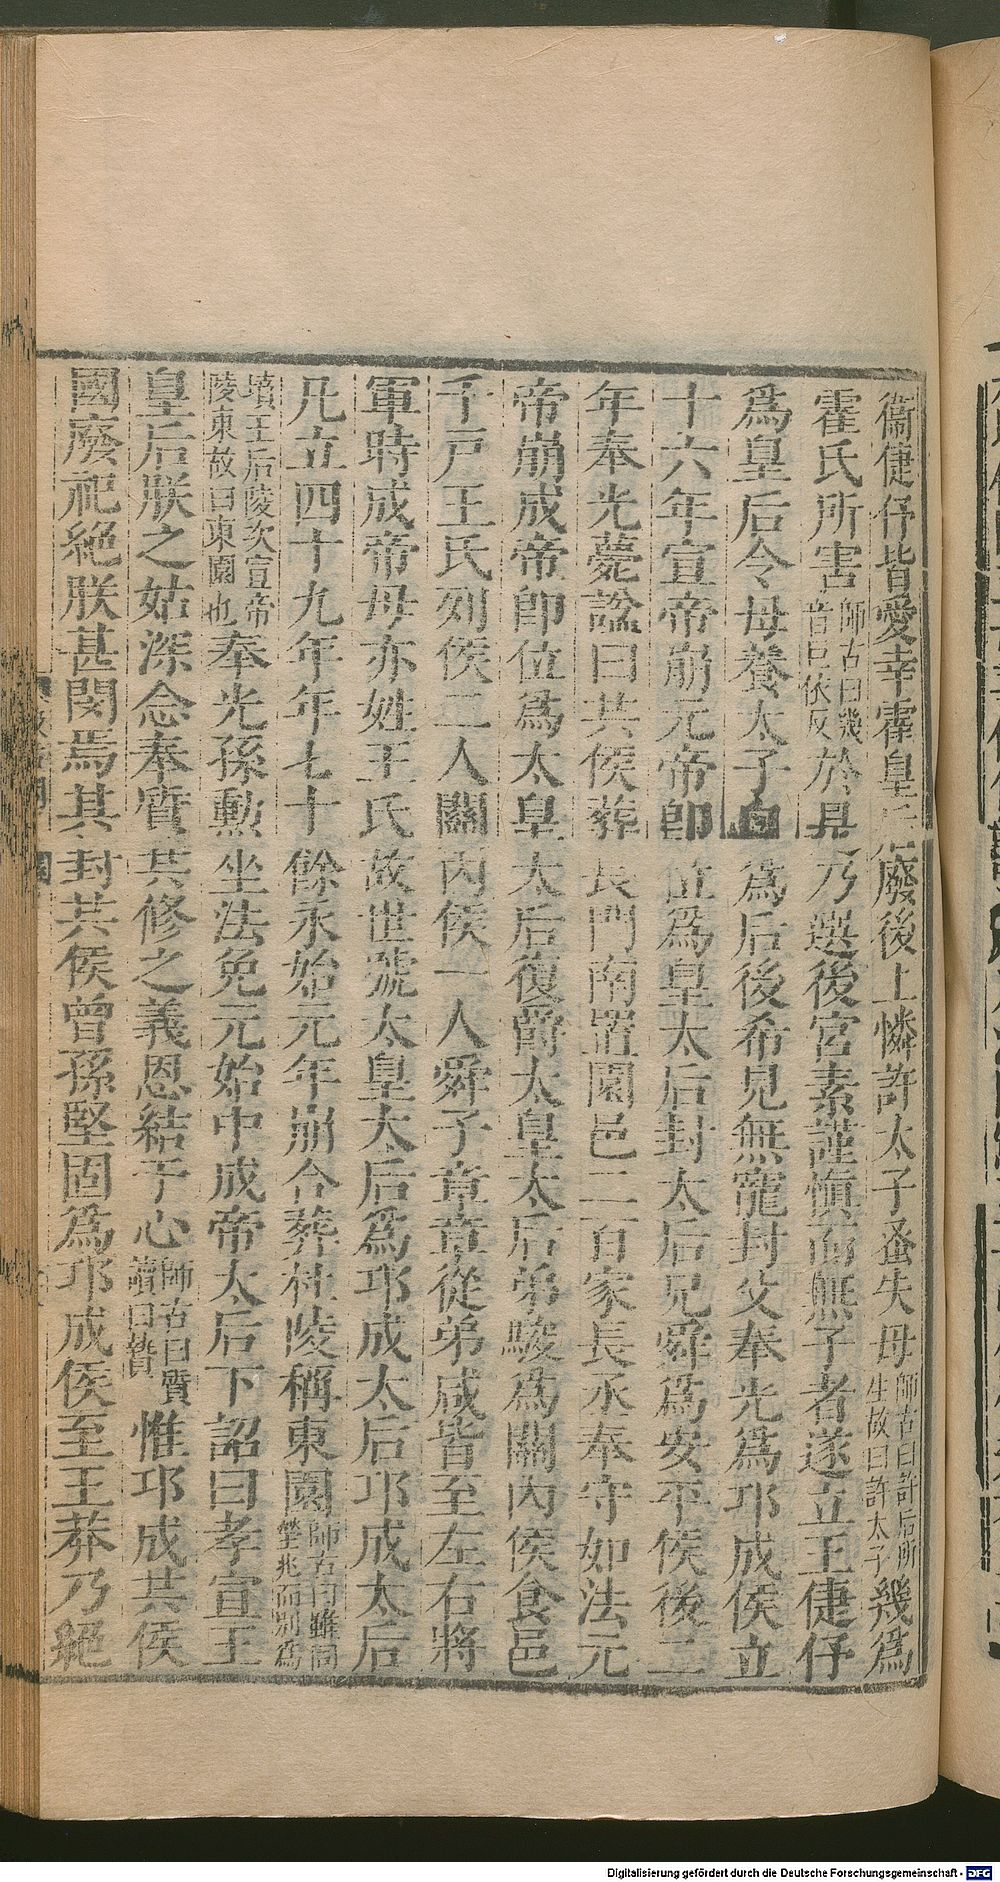 衞倢伃皆愛幸霍皇后廢後上憐許太子蚤失母師古曰許后所生故曰許太子幾爲
霍氏所害師古曰幾音巨依反於是乃選後宮素謹愼而無子者遂立王倢伃
爲皇后令母養太子自爲后後希見無寵封父奉光爲邛成侯立
十六年宣帝崩元帝卽位爲皇太后封太后兄舜爲安平侯後二
年奉光薨諡曰共侯葬長門南置園邑二百家長丞奉守如法元
帝崩成帝卽位爲太皇太后復爵太皇太后弟駿爲關內侯食邑
千戸王氏列侯二人關內侯一人舜子章章從弟咸皆至左右將
軍時成帝母亦姓王氏故世號太皇太后爲邛成太后邛成太后
凡立四十九年年七十餘永始元年崩合葬杜陵稱東園師古曰雖同塋兆而別爲
墳王后陵次宣帝陵東故曰東園也奉光孫勲坐法免元始中成帝太后下詔曰孝宣王
皇后朕之姑深念奉質共修之義恩結于心師古曰質讀曰贄惟邛成共侯
國廢祀絕朕甚閔焉其封共侯曾孫堅固爲邛成侯至王莽乃絕
Digitalisierung gefördert durch die Deutsche Forschungsgemeinschaft - DFG